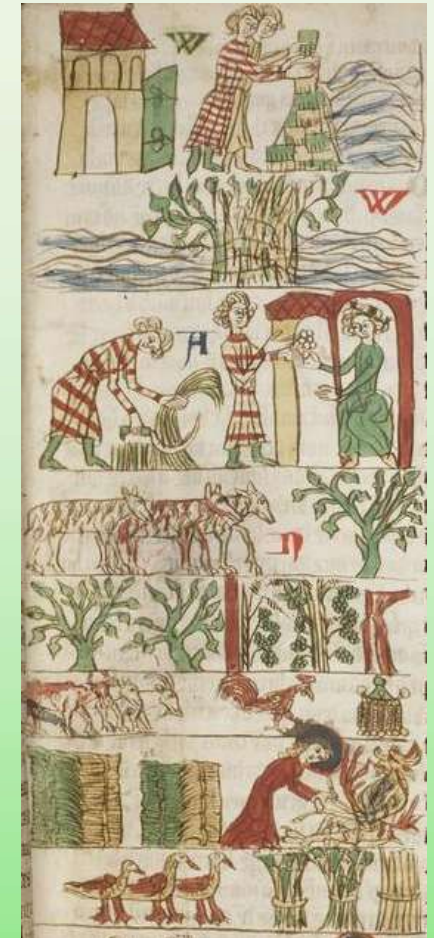 W
W
A
N